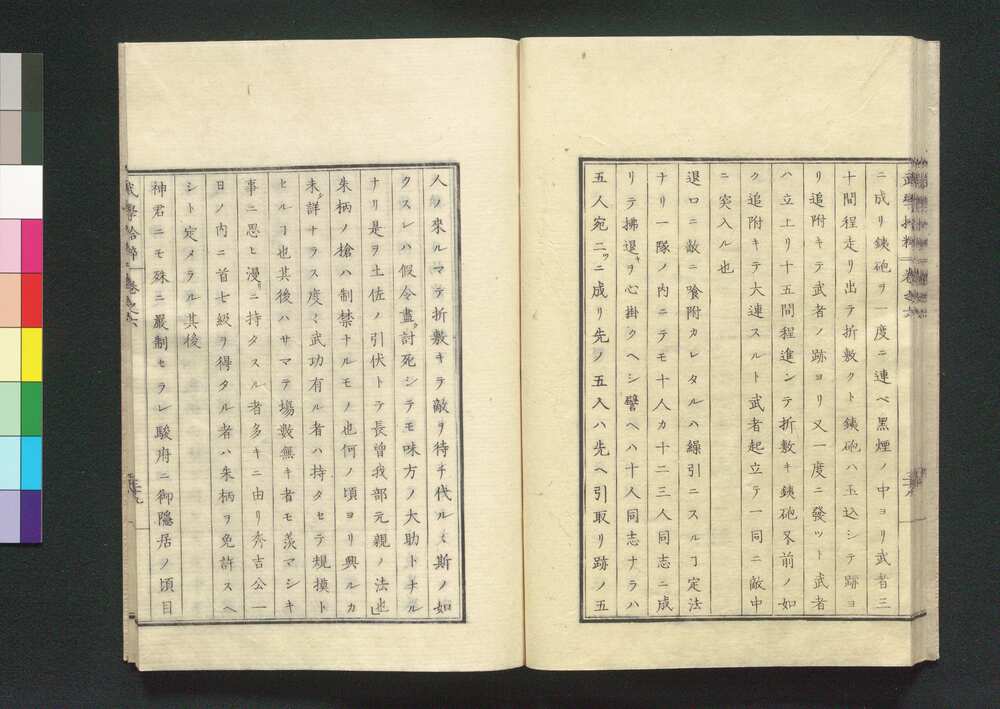 ニ成リ銕砲ヲ一度ニ連ベ黒煙ノ中ヨリ武者三
十間程走リ出テ折敷ク卜銕砲ハ玉込シテ跡ヨ
リ追附キテ武者ノ跡ヨリ又一度ニ發ツト武者
ハ立上リ十五間程進ンテ折敷キ銕砲又前ノ如
ク追附キテ大連スルト武者起立テ一同ニ敵中
ニ突入ル也
退口ニ敵ニ喰附カレタルハ繰引ニスルヿ定法
ナリ一隊ノ内ニテモ十人カ十二三人同志ニ成
リテ拂退ヲ心掛クヘシ譬ヘハ十人同志ナラハ
五人宛二ツニ成リ先ノ五人ハ先ヘ引取リ跡ノ五
人ノ來ルマテ折敷キテ敵ヲ待チ代ル〱斯ノ如
クスレハ假令盡ク討死シテモ味方ノ大助トナル
ナリ是ヲ土佐ノ引伏ト云長曾我部元親ノ法也
朱柄ノ槍ハ制禁ナルモノ也何ノ頃ヨリ興ルカ
未タ詳ナラス度〱武功有ル者ハ持タセテ規摸ト
ヒルヿ也其後ハサマテ場數無キ者モ羨マシキ
事ニ思ヒ漫リニ持タスル者多キニ由リ秀吉公一
日ノ内ニ首七級リ得タル者ハ朱柄ヲ免許スヘ
シト定メラル其後
神君ニモ殊ニ嚴制セラレ駿府ニ御隱居ノ頃目
武學拾粹 卷之六